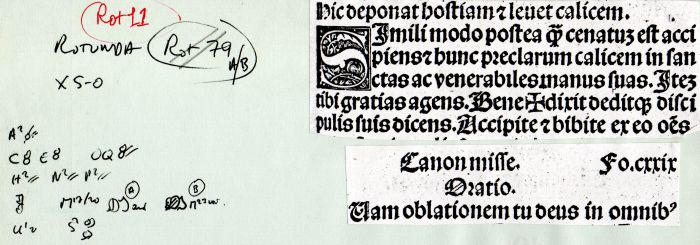 Rot 11
ROTUNDA Rot 79 A/B
XS-O
A²
C8 E8 OQ8
H² N² P²
A
B
hic deponat hostiam ⁊ leuet calicem.
Simili modo postea q̃ cenatuz est acci
piens ⁊ hunc preclarum calicem in san
ctas ac venerabiles manus suas. Itez
tibi gratias agens. Bene✠dixit deditqꝫ disci
pulis suis dicens. Accipite ⁊ bibite ex eo oẽs
Canon misse. Fo.cxxix
Oratio.
Uam oblationem tu deus in omnibꝰ